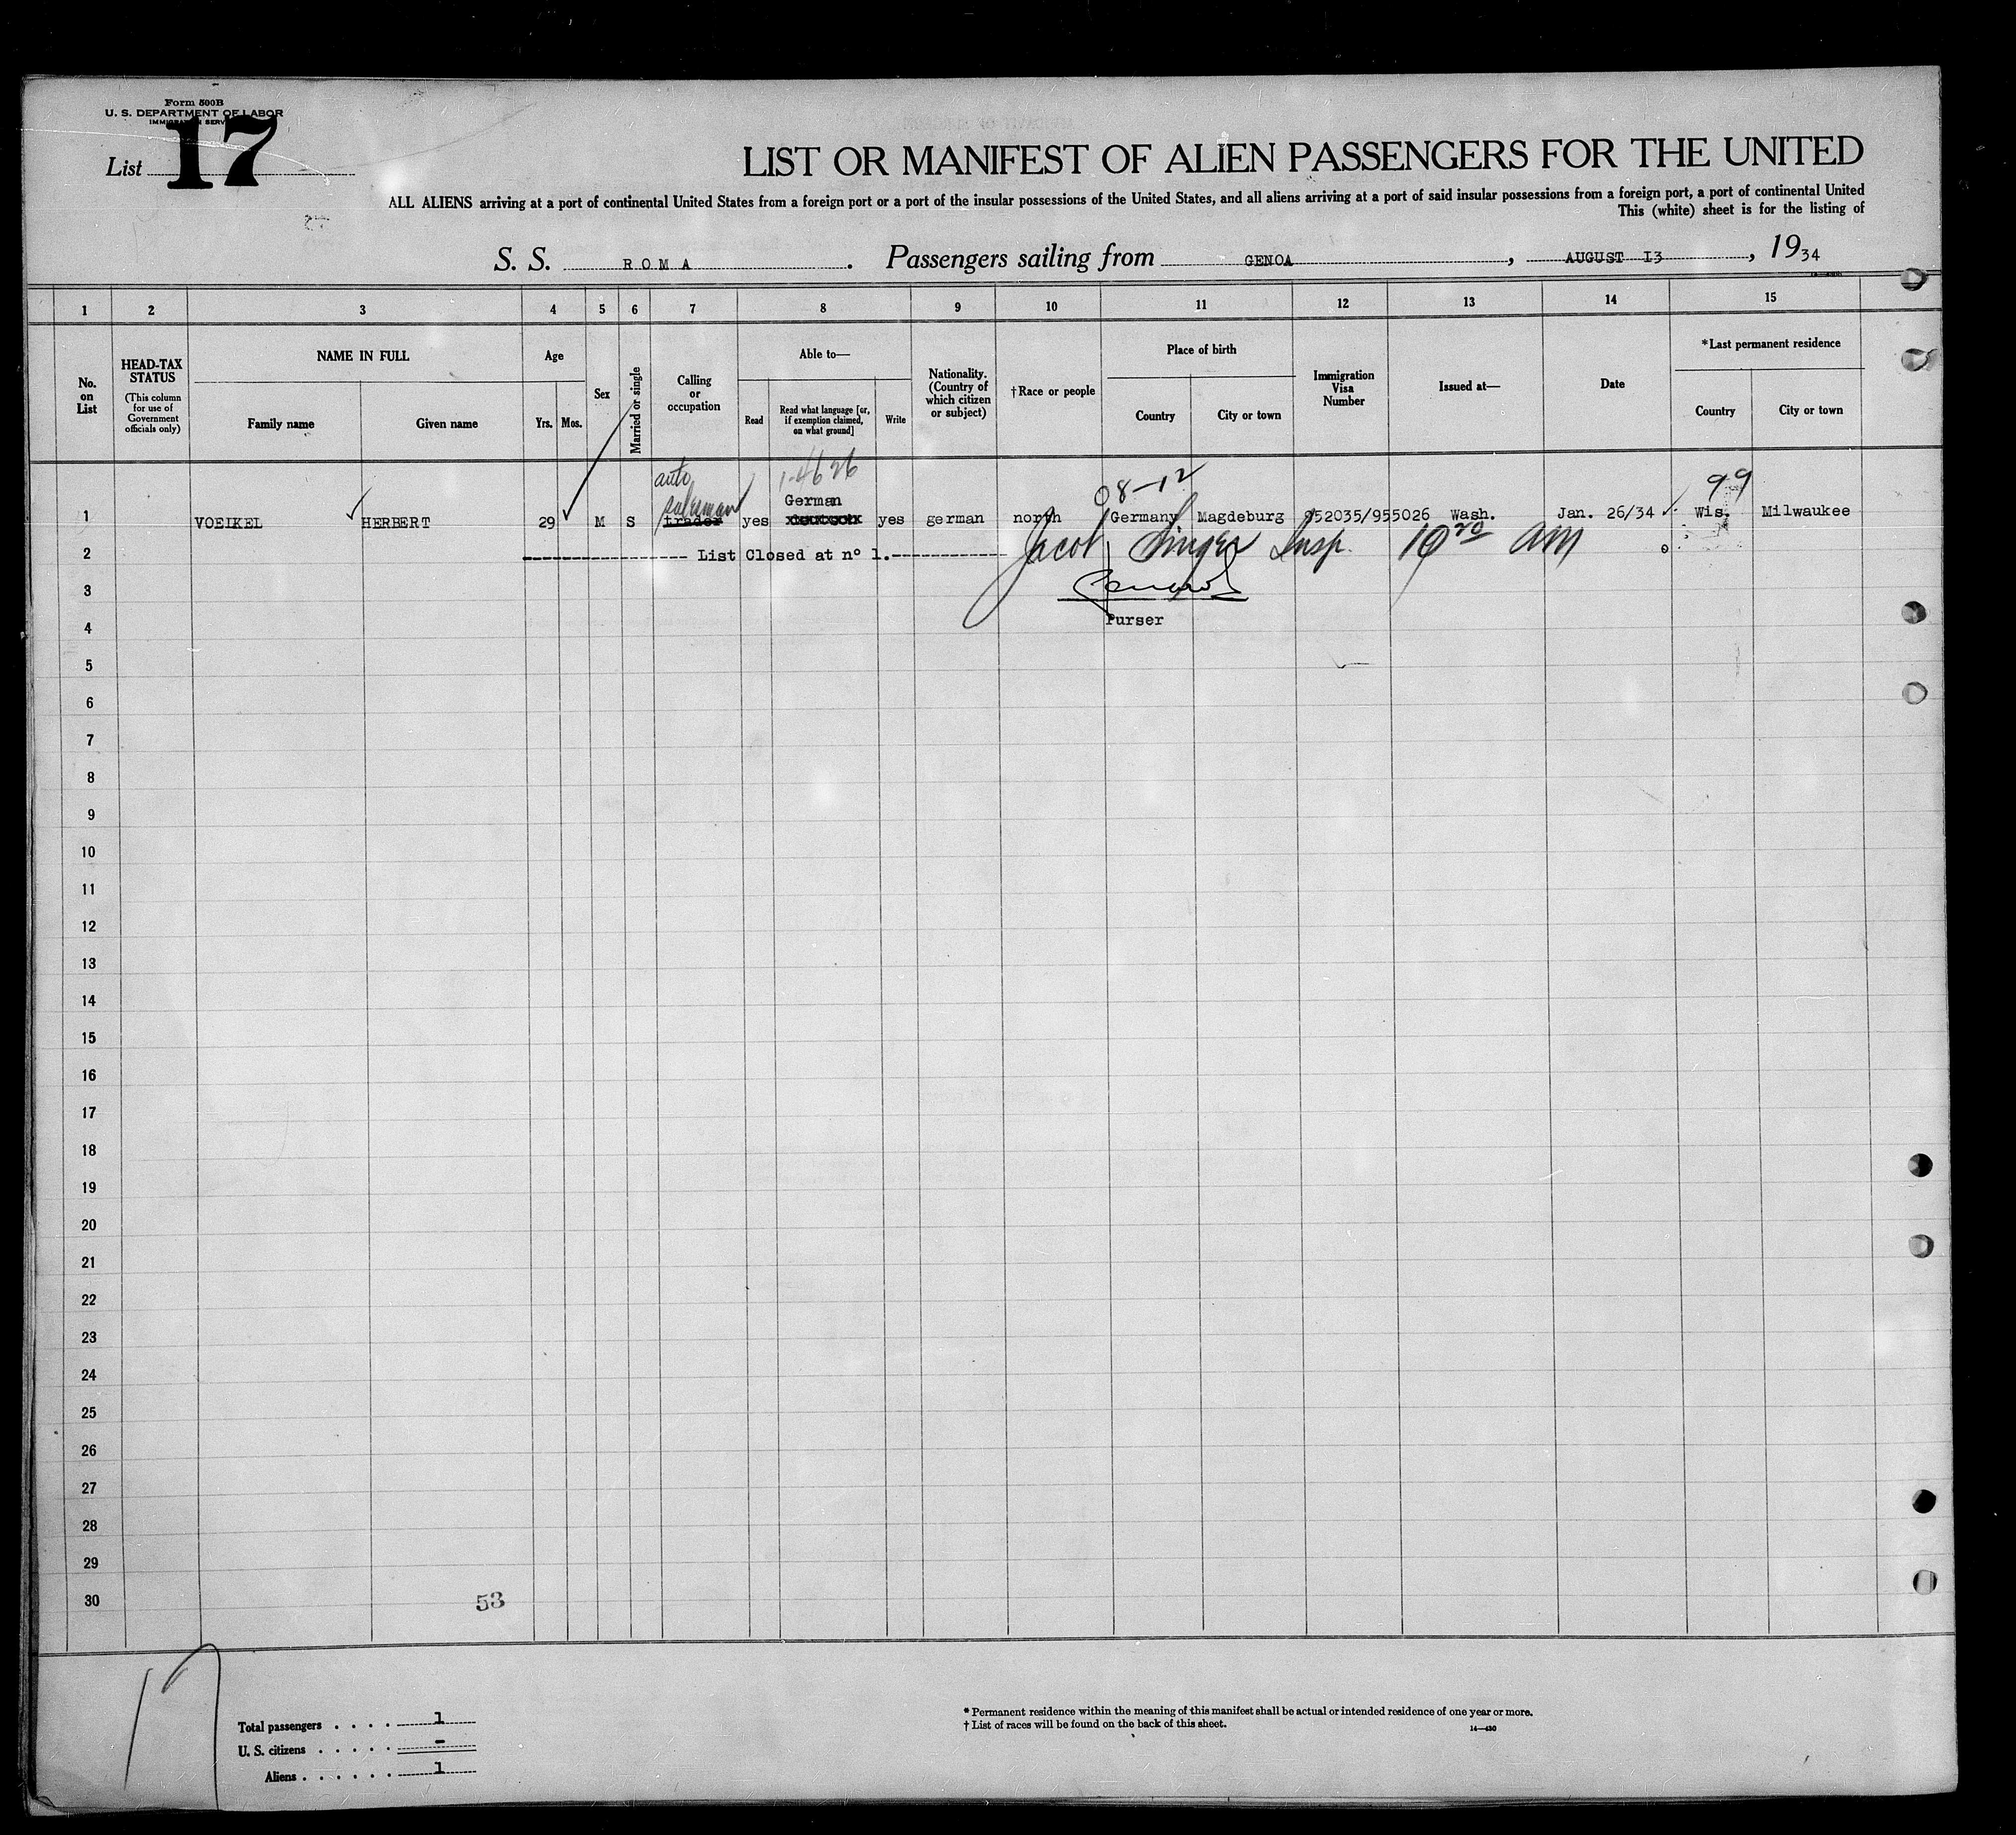 Form 500B
U. S. DEPARTMENT OF LABOR
IMMIGRATION SERVICE
List 17
LIST OR MANIFEST OF ALIEN PASSENGERS FOR THE UNITED
ALL ALIENS arriving at a port of continental United States from a foreign port or a port of the insular possessions of the United States, and all aliens arriving at a port of said insular possessions from a foreign port, a port of continental United
This (white) sheet is for the listing of
S. S. ROMA. Passengers sailing from GENOA, AUGUST I3, 1934
1 2 3 4 5 6 7 8 9 10 11 12 13 14 15
No. on List
HEAD-TAX STATUS (This column for use of Government officials only)
NAME IN FULL
Family name Given name
Age
Yrs. Mos.
Sex
Married or single
Calling or occupation
Able to—
Read
Read what language [or, if exemption claimed, on what ground]
Write
Nationality. (Country of which citizen or subject)
†Race or people
Place of birth
Country City or town
Immigration Visa Number
Issued at—
Date
*Last permanent residence
Country City or town
auto 1-4626 08-12 99
salesman German
1 VOEIKEL HERBERT 29 M S trader yes yes german north Germany Magdeburg 952035/955026 Wash. Jan. 26/34 Wis. Milwaukee
2 List Closed at nº 1. Jacob Singer Insp. 10 20 AM
3
4 Purser
5
6
7
8
9
10
11
12
13
14
15
16
17
18
19
20
21
22
23
24
25
26
27
28
29
30
53
17
Total passengers . . . . 1
U. S. citizens . . . . . -
Aliens . . . . . . 1
* Permanent residence within the meaning of this manifest shall be actual or intended residence of one year or more.
† List of races will be found on the back of this sheet.
14—430